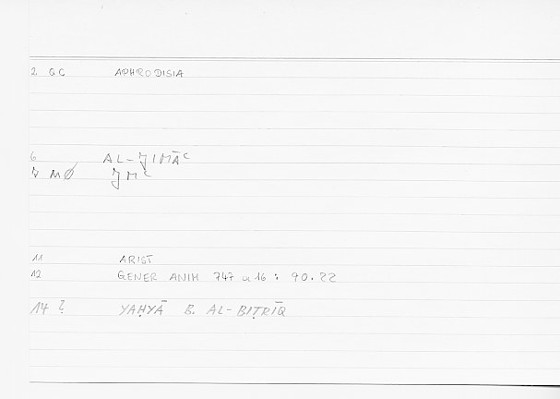 2 GC APHRODISIA
6 AL-ǦIMĀʿ
7 MØ ǦMʿ
11 ARIST
12 GENER ANIM 747 a 16 : 90.22
14 ? YAḤYĀ B. AL-BIṬRĪQ